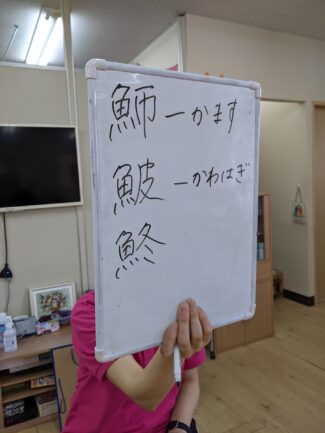 魳ーかます
鮍ーかわはぎ
鮗